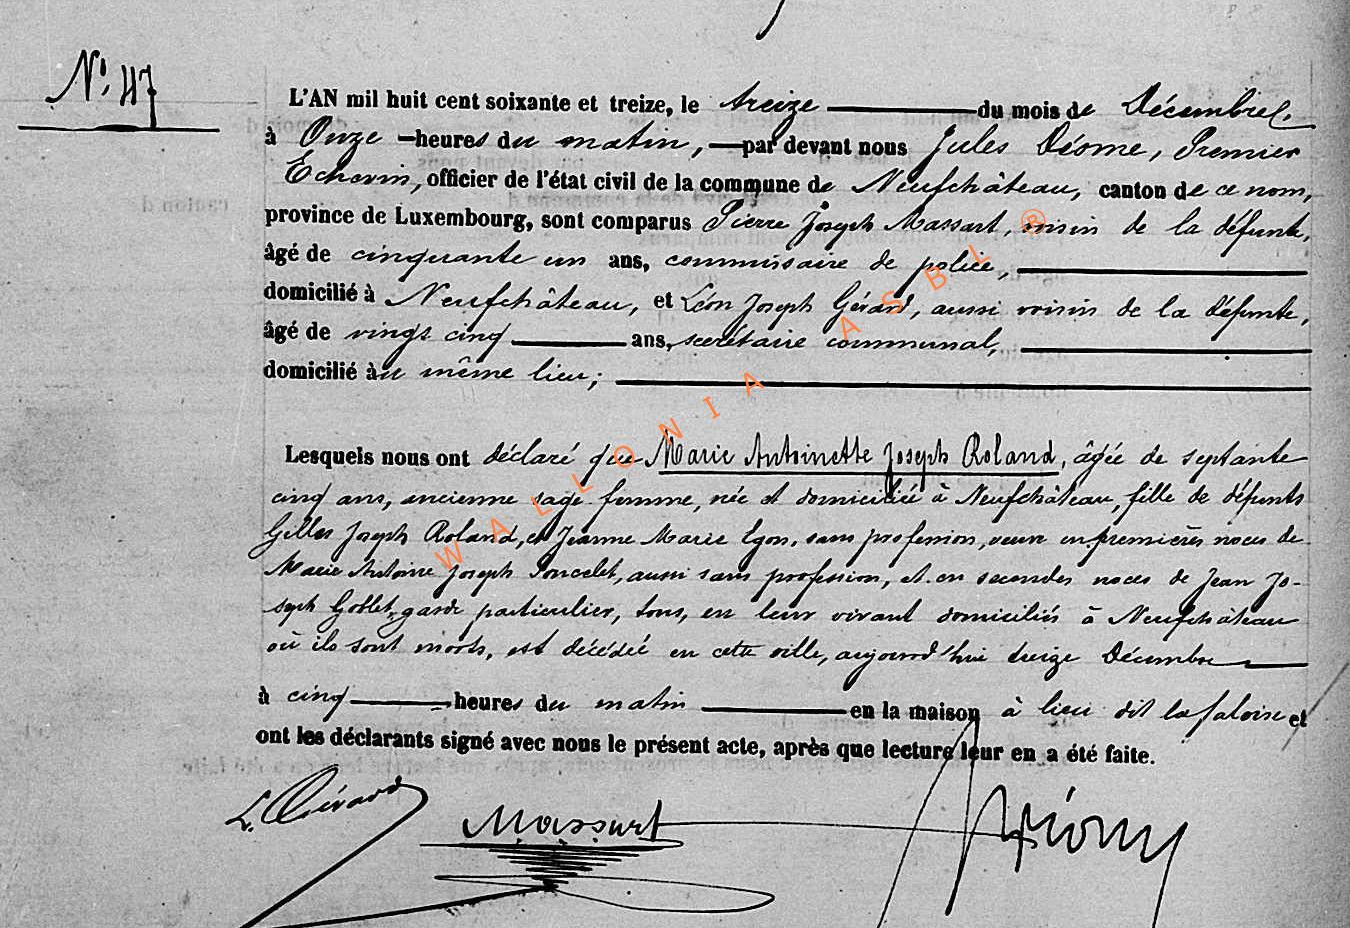 N° 47
L'AN mil huit cent soixante et treize, le treize du mois de Décembre,
à Onze heures du matin, par devant nous Jules Déome, Premier
Echevin, officier de l'état civil de la commune de Neufchâteau, canton de ce nom,
province de Luxembourg, sont comparus Pierre Joseph Massart, voisin de la défunte,
âgé de cinquante un ans, commissaire de police,
domicilié à Neufchâteau, et Léon Joseph Gérard, aussi voisin de la défunte,
âgé de vingt cinq ans, secrétaire communal,
domicilié au même lieu;
Lesquels nous ont déclaré que Marie Antoinette Joseph Roland, âgée de septante
cinq ans, ancienne sage femme, née et domiciliée à Neufchâteau, fille de défunts
Gilles Joseph Roland, et Jeanne Marie Egon, sans profession, veuve en premières noces de
Marie Antoine Joseph Poncelet, aussi sans profession, et en secondes noces de Jean Jo-
seph Goblet, garde particulier, tous, en leur vivant domiciliés à Neufchâteau
où ils sont morts, est décédée en cette ville, aujourd'hui treize Décembre
à cinq heures du matin en la maison à lieu dit la faloise et
ont les déclarants signé avec nous le présent acte, après que lecture leur en a été faite.
L. Gérard Massart
WALLONIA ASBL ®